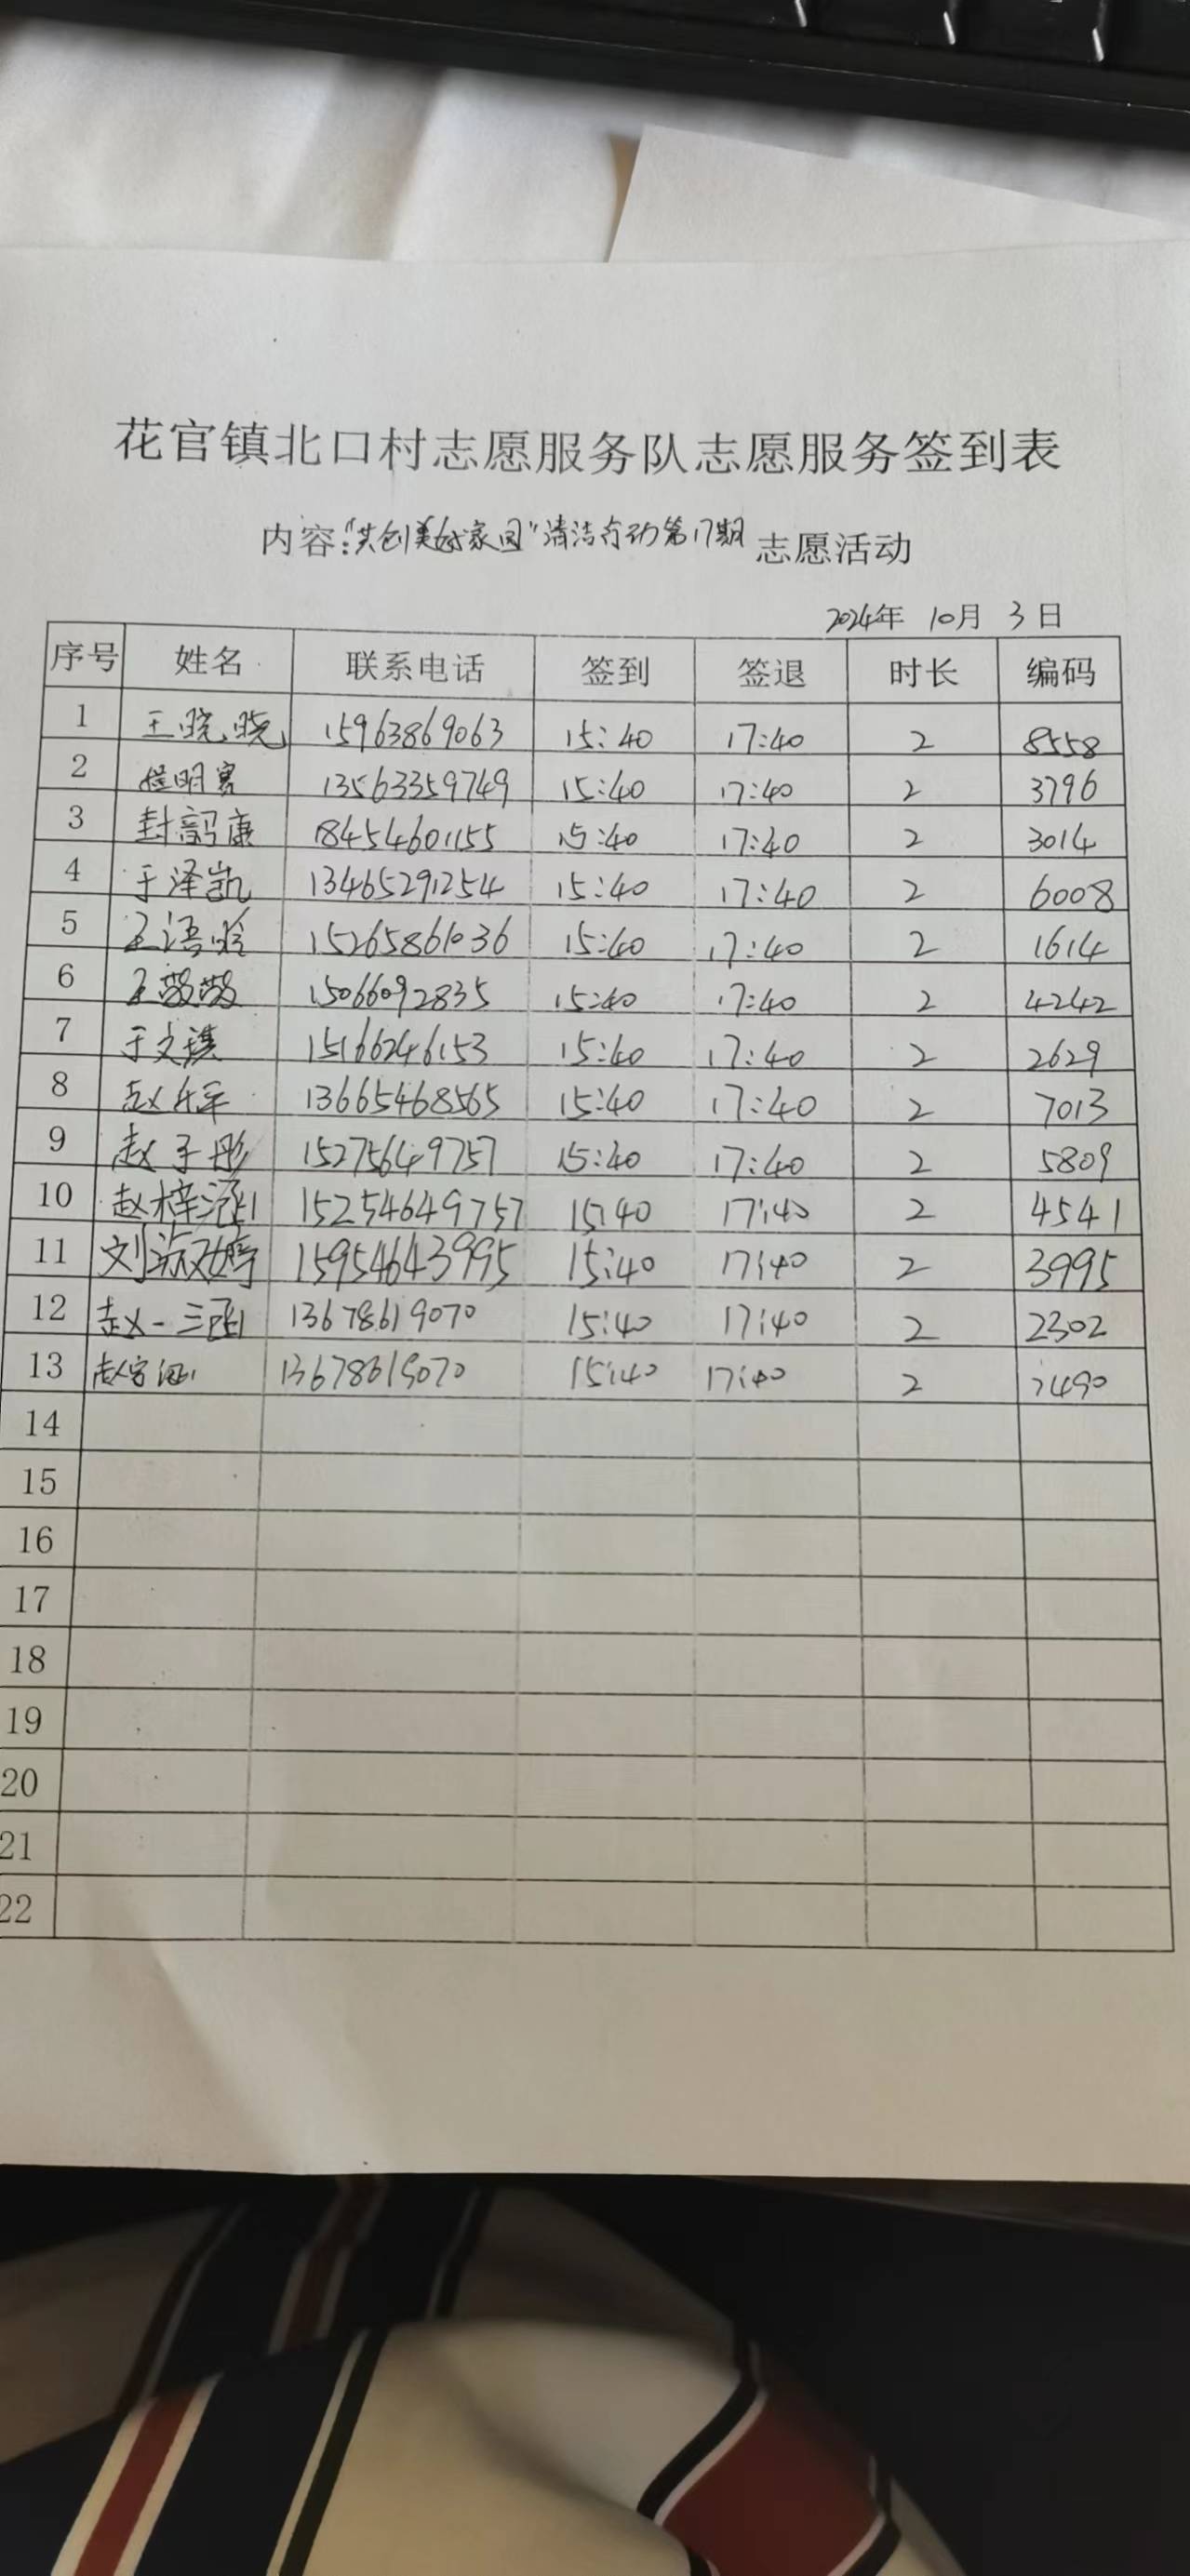 花官镇北口村志愿服务队志愿服务签到表
内容:"共创美好家园"清洁行动第17期 志愿活动
2024年 10月 3日
序号 姓名 联系电话 签到 签退 时长 编码
1 王晓晓 15963869063 15:40 17:40 2 8558
2 明 13563359749 15:40 17:40 2 3796
3 封韶康 18454601155 15:40 17:40 2 3014
4 于泽凯 13465291254 15:40 17:40 2 6008
5 王语晗 15265861036 15:40 17:40 2 1614
6 王 15066092835 15:40 17:40 2 4242
7 于文祺 15166246153 15:40 17:40 2 2629
8 赵 13665468565 15:40 17:40 2 7013
9 赵子彤 15275649757 15:40 17:40 2 5809
10 赵梓涵 15254649757 15:40 17:40 2 4541
11 刘淑婷 15954643995 15:40 17:40 2 3995
12 赵一涵 13678619070 15:40 17:40 2 2302
13 赵 13678619070 15:40 17:40 2 2490
14
15
16
17
18
19
20
21
22